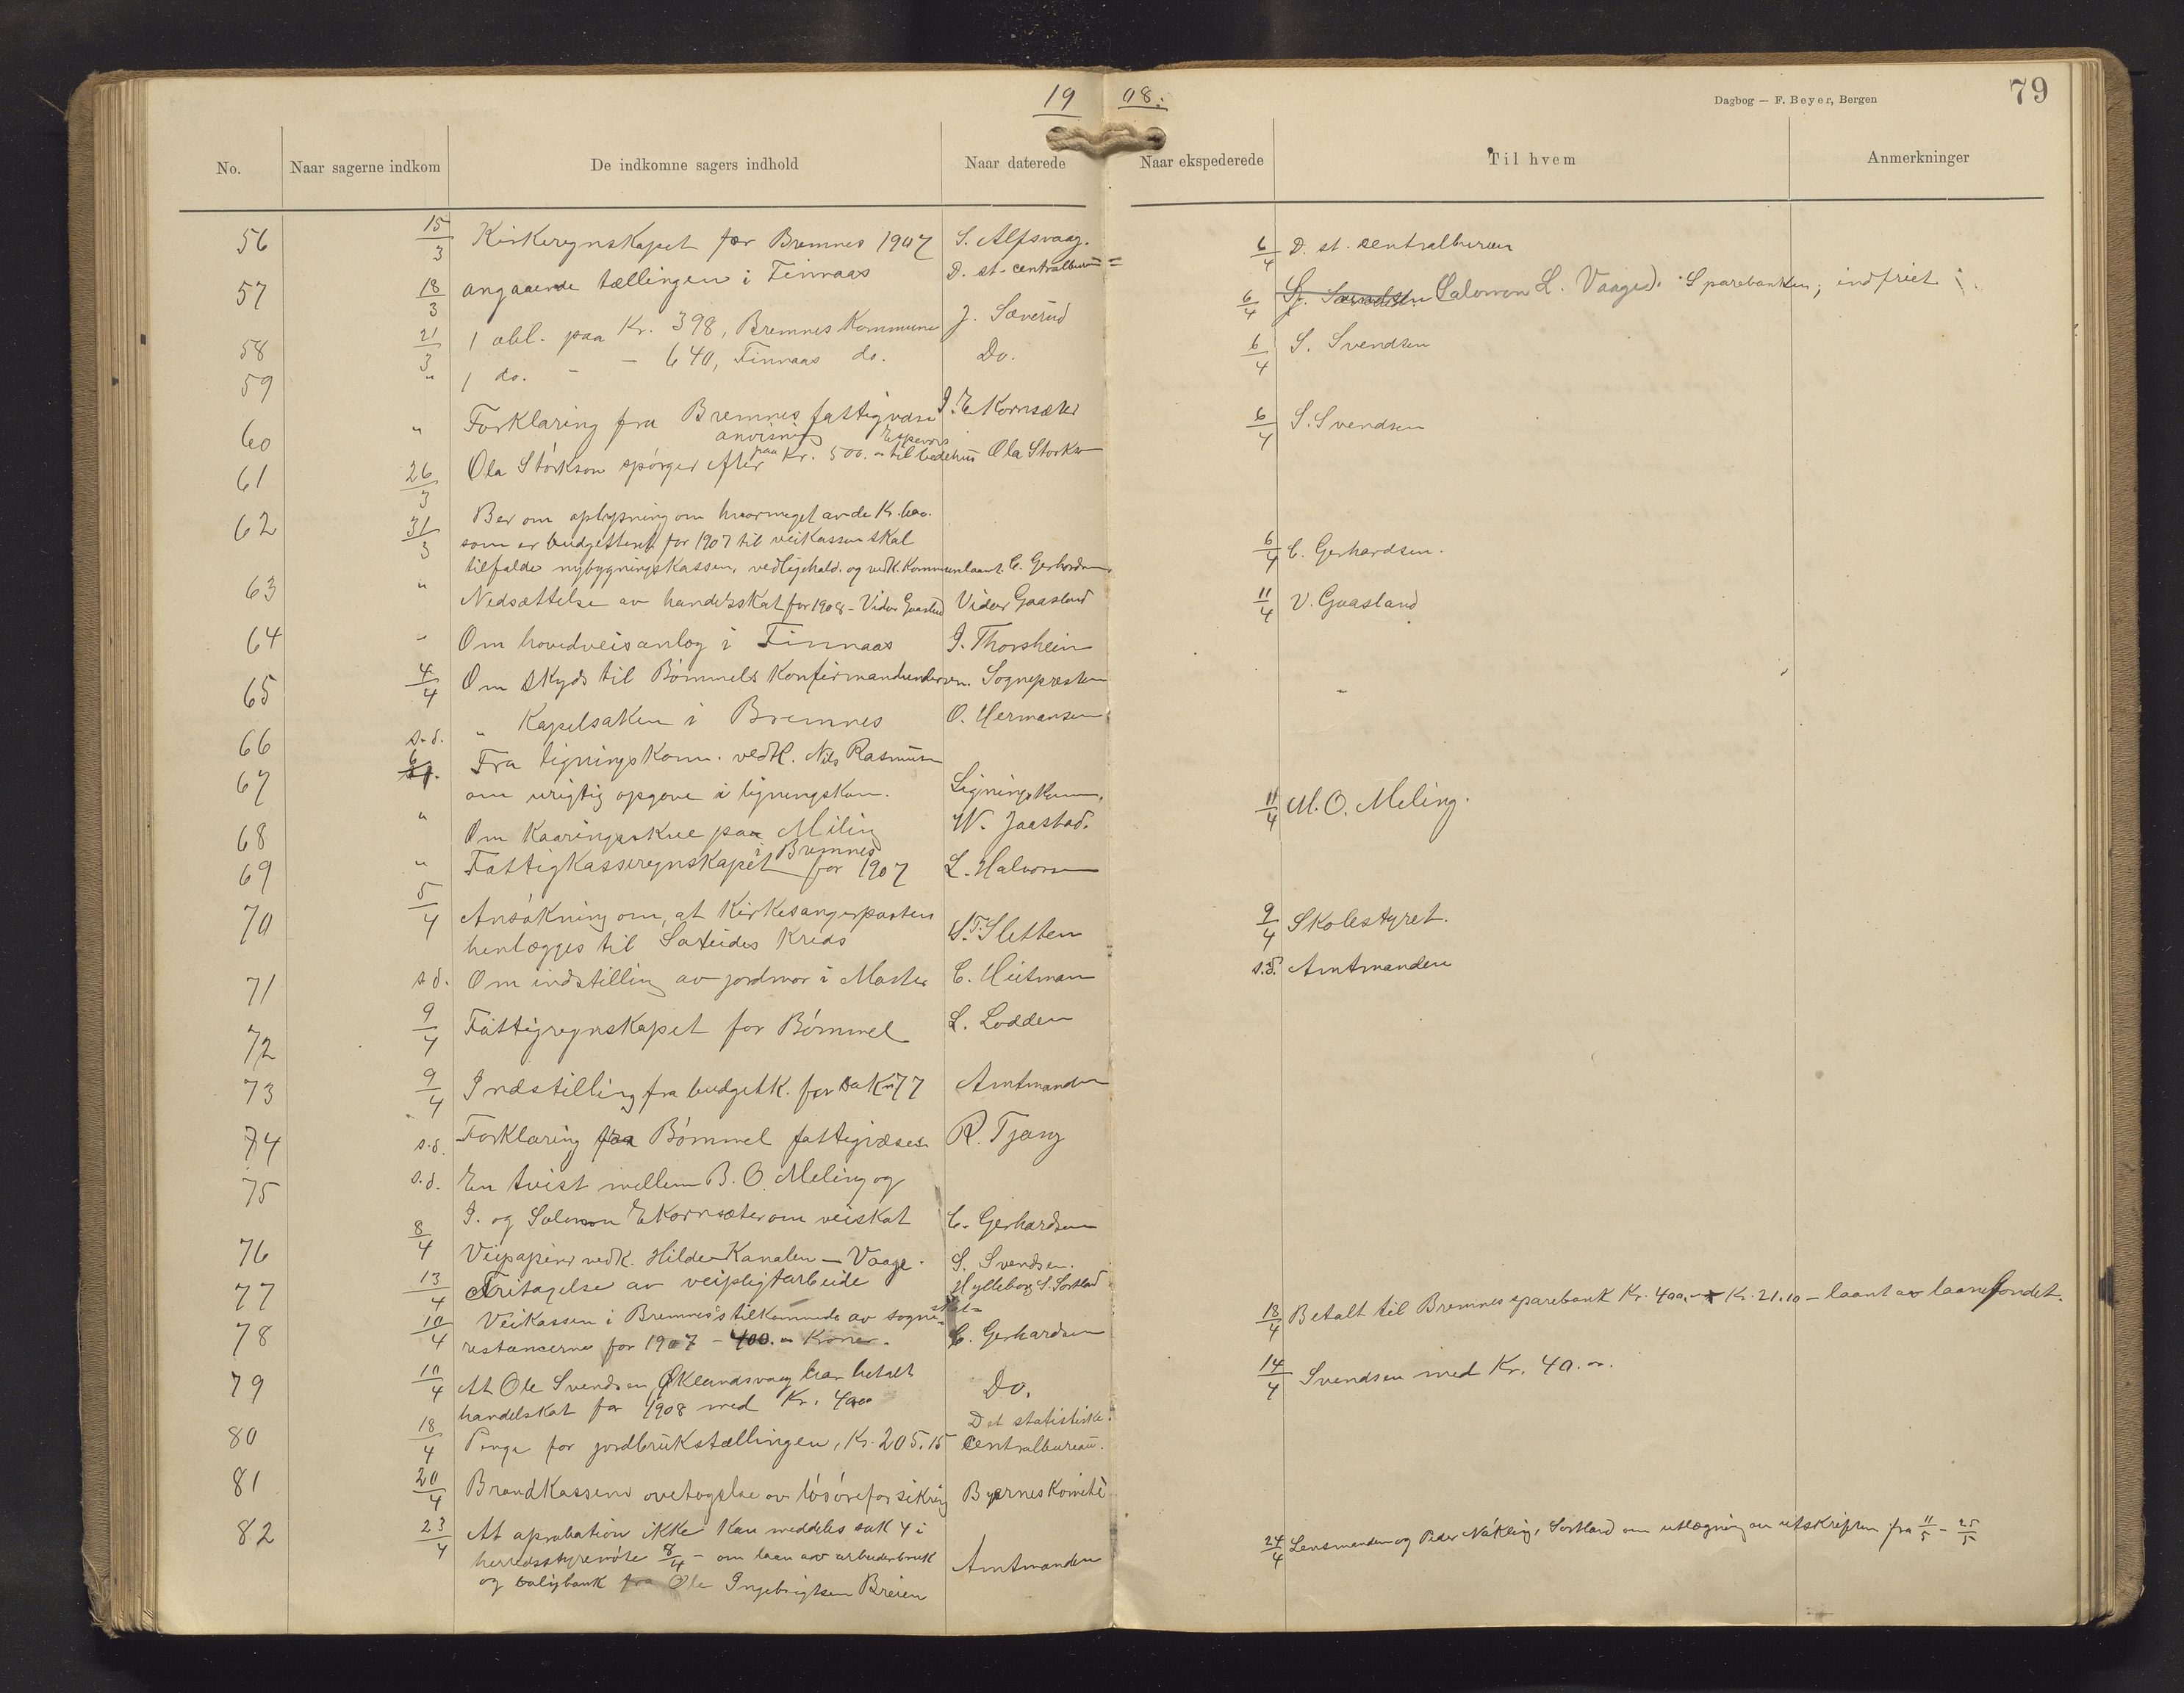 19 08.
Dagbog — F. Beyer, Bergen
79
No. Naar sagerne indkom De indkomne sagers indhold Naar daterede Naar ekspederede Til hvem Anmerkninger
56 15/3 Kirkeregnskapet for Bremnes 1907 S. Alfsvaag.
57 18/3 angaaende tællingen i Finnaas D. st. centralbureau 6/4 D. st. centralbureau
58 21/3 1 obl. paa Kr. 398, Bremnes Kommune J. Sæverud 6/4 Salomon L. Vaage d. Sparebanken, indfriet
59 " 1 do. - - 640, Finnaas do. Do. 6/4 S. Svendsen
60 " Forklaring fra Bremnes fattigvæsen I. Ekornsæter 6/4 S. Svendsen
anvisning Espevær
61 26/3 Ola Störkson spörger efter paa Kr. 500.- til bedehus Ola Storks
62 31/3 Ber om oplysning om hvormeget av de Kr.
som er budgetteret for 1907 til veikassen skal
tilfalde nybygningskassen, vedligehold. og vedk. Kommunelaant. C. Gerhardsen 6/4 C. Gerhardsen.
63 " Nedsættelse av handelsskat for 1908 - Vidar Gaasland Vidar Gaasland 11/4 V. Gaasland
64 " Om hovedveisanlæg i Finnaas I. Thorsheim
65 4/4 Om skyds til Bömmels Konfirmandunderv. Sognepresten
66 s.d. " Kapelsaken i Bremnes O. Hermansen
67 6/4 Fra ligningskom. vedk. Nils Rasmusen
om urigtig opgave i ligningskom. Ligningskom.
68 " Om Kaaringsskue paa Miling W. Jaastad. 11/4 M. O. Meling.
i Bremnes
69 " Fattigkasseregnskapet for 1907 L. Halvorsen
70 5/4 Ansökning om, at Kirkesangerposten
henlægges til Kreds S. T. Sletten 9/4 Skolestyret.
71 s.d. Om indstilling av jordmor i Moster C. Heitman s.d. Amtmanden
72 9/4 Fattigregnskapet for Bömmel L. Lodden
73 9/4 Indstilling fra budgetk. for 77 Amtmanden
74 s.d. Forklaring fra Bömmel fattigvæsen R. Tjong
75 s.d. En tvist mellem B. O. Meling og
I. og Salomon Ekornsæter om veiskat C. Gerhardsen
76 8/4 Veipapirer vedk. Hilde Kanalen — Vaage. S. Svendsen.
77 13/4 Fritagelse av veipligtarbeide Hylleborg S. Sortland
78 10/4 Veikassen i Bremnes's tilkommende av sogne=
restancerne for 1907 - 400.- Kroner. C. Gerhardsen 18/4 Betalt til Bremnes sparebank Kr. 400.- + Kr. 21.10 - laant av laanefondet.
79 10/4 At Ole Svendsen, Öklandsvaag har betalt
handelskat for 1908 med Kr. 40.00 Do. 14/4 Svendsen med Kr. 40.00.
80 18/4 Penge for jordbrukstællingen, Kr. 205.15 Det statistiske centralbureau.
81 20/4 Brandkassens overtagelse av lösöreforsikring Byernes Komité
82 23/4 At aprobation ikke kan meddeles sak 4 i
herredsstyremöte 8/4 - om laan av arbeiderbruk
og boligbank fra Ole Ingebrigtsen Breien Amtmanden 24/4 Lensmanden og Peder Nökling, Sortland om utlægning av utskriften fra 11/5 - 25/5